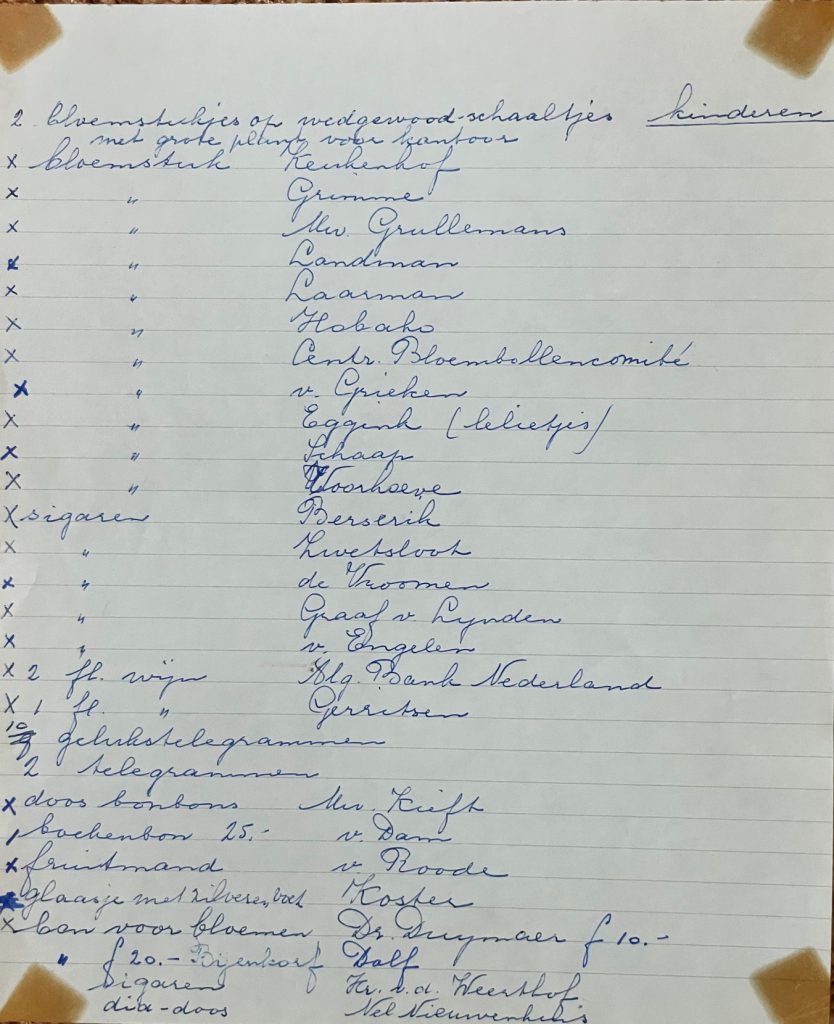 2 bloemstukjes op wedgewood-schaaltjes kinderen
met grote plant voor kantoor
x bloemstuk Keukenhof
x " Grimme
x " Mw. Grullemans
x " Landman
x " Laarman
x " Hobaho
x " Centr. Bloembollencomité
x " v. Grieken
x " Eggink (lelietjes)
x " Schaap
x " Voorhoeve
x sigaren Berserik
x " Zwetsloot
x " de Vroomen
x " Graaf v. Lynden
x " v. Engelen
x 2 fl. wijn Alg. Bank Nederland
x 1 fl. " Gerritsen
10 gelukstelegrammen
2 telegrammen
x doos bonbons Mw. Kieft
boekenbon 25.- v. Dam
x fruitmand v. Roode
x glaasje met zilveren voet Koster
x bon voor bloemen Dr. Duymaer f 10.-
" f 20.- Bijenkorf Dolf
sigaren Hr. v.d. Weerthof
dia-doos Nel Nieuwenhuis